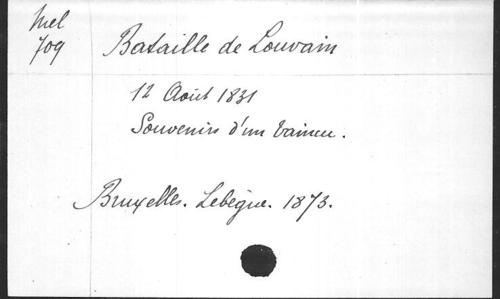 Mel
709
Bataille de Louvain
12 Août 1831
Souvenirs d'un vaincu.
Bruxelles. Lebègue. 1873.